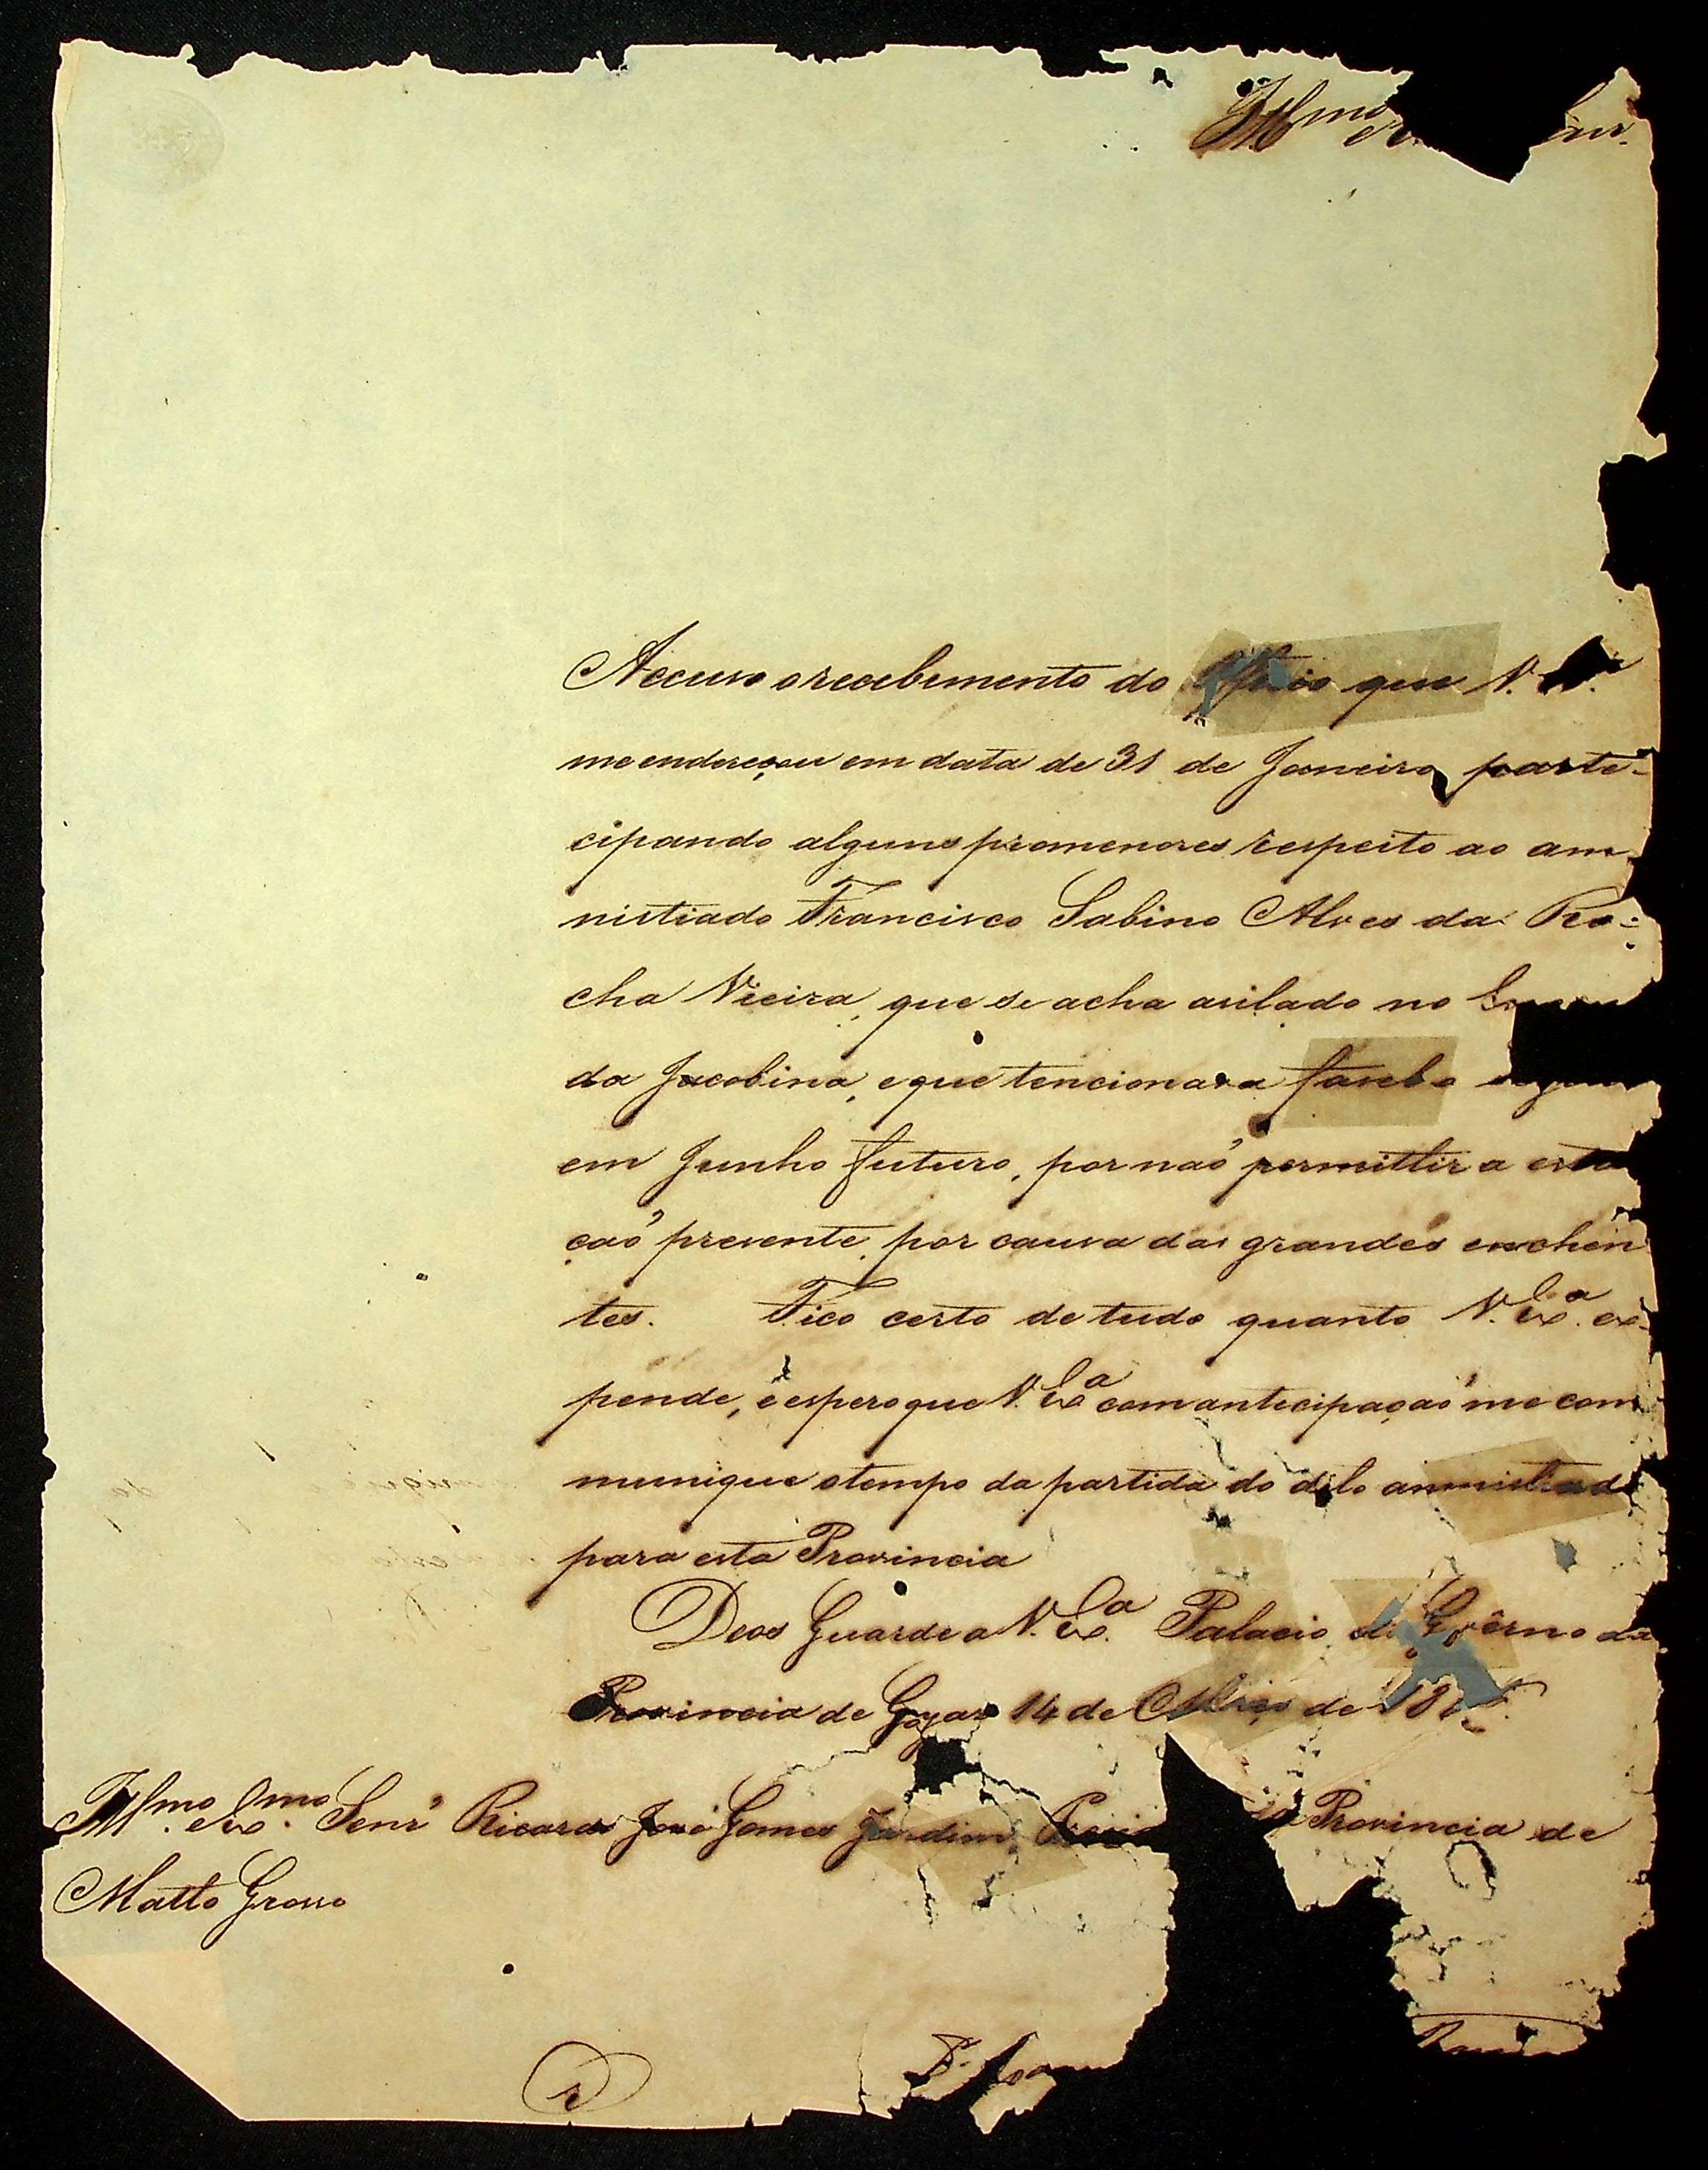 Illmo e
Accuso o recebimento do Officio que V.
me endereçou em data de 31 de Janeiro parte-
cipando alguns promenores respeito ao am-
nistiado Francisco Sabino Alves da Ro-
cha Vieira, que se acha asilado no
da Jacobina, e que tencionava fasel-o
em Junho futuro, por naõ permittir a esta
çaõ presente, por causa das grandes enchen
tes. Fico certo de tudo quanto V. Exa. ex-
pende, e espero que V. Exa com antecipaçaõ me com
munique o tempo da partida do dito amnistiado
para esta Provincia
Deos Guarde a V. Exa. Palacio do Govêrno da
Provincia de Goyaz 14 de Março de 18
Illmo. e Exmo. Senr Ricardo José Gomes Jardim Provincia de
Matto Grosso